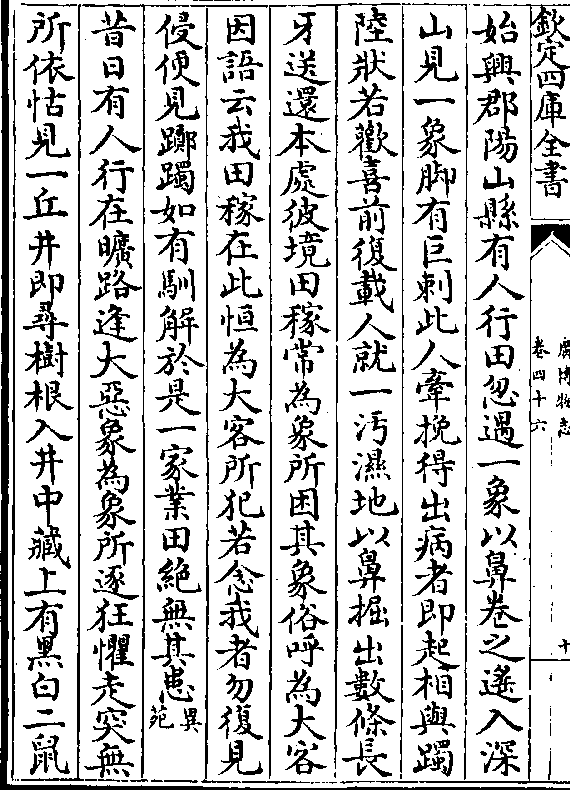 欽定四庫全書
廣博物志
卷四十六
十
始興郡陽山縣有人行田忽遇一象以鼻卷之遙入深
山見一象脚有巨刺此人牽挽得出病者即起相與躅
陸狀若歡喜前復載人就一汚濕地以鼻掘出數條長
牙送還本處彼境田稼常為象所困其象俗呼為大客
因語云我田稼在此恒為大客所犯若念我者勿復見
侵便見躑躅如有馴解於是一家業田絶無其患異苑
昔日有人行在曠路逢大惡象為象所逐狂懼走突無
所依怙見一丘井即尋樹根入井中藏上有黑白二鼠